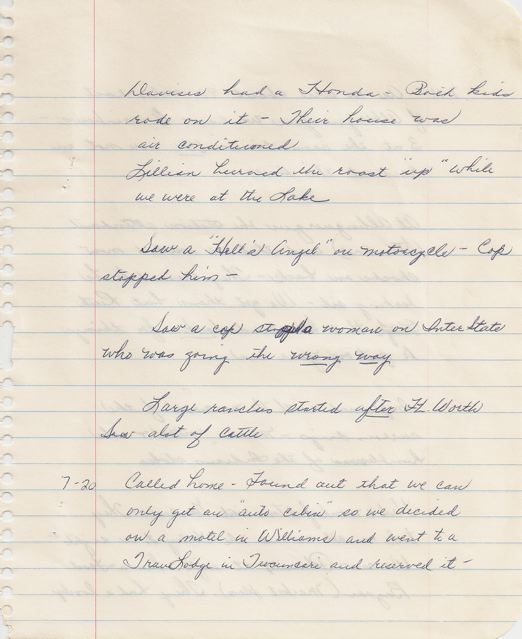 Davises had a Honda - Both kids
rode on it - Their house was
air conditioned
Lillian burned the roast "up" while
we were at the Lake
Saw a "Hell's Angel" on motorcycle - Cop
stopped him -
Saw a cop stop a woman on InterState
who was going the wrong way
Large ranches started after Ft. Worth
Saw alot of cattle
7-20 Called home - Found out that we can
only get an "auto cabin" so we decided
on a motel in Williams and went to a
TravLodge in Tucumcari and reserved it -